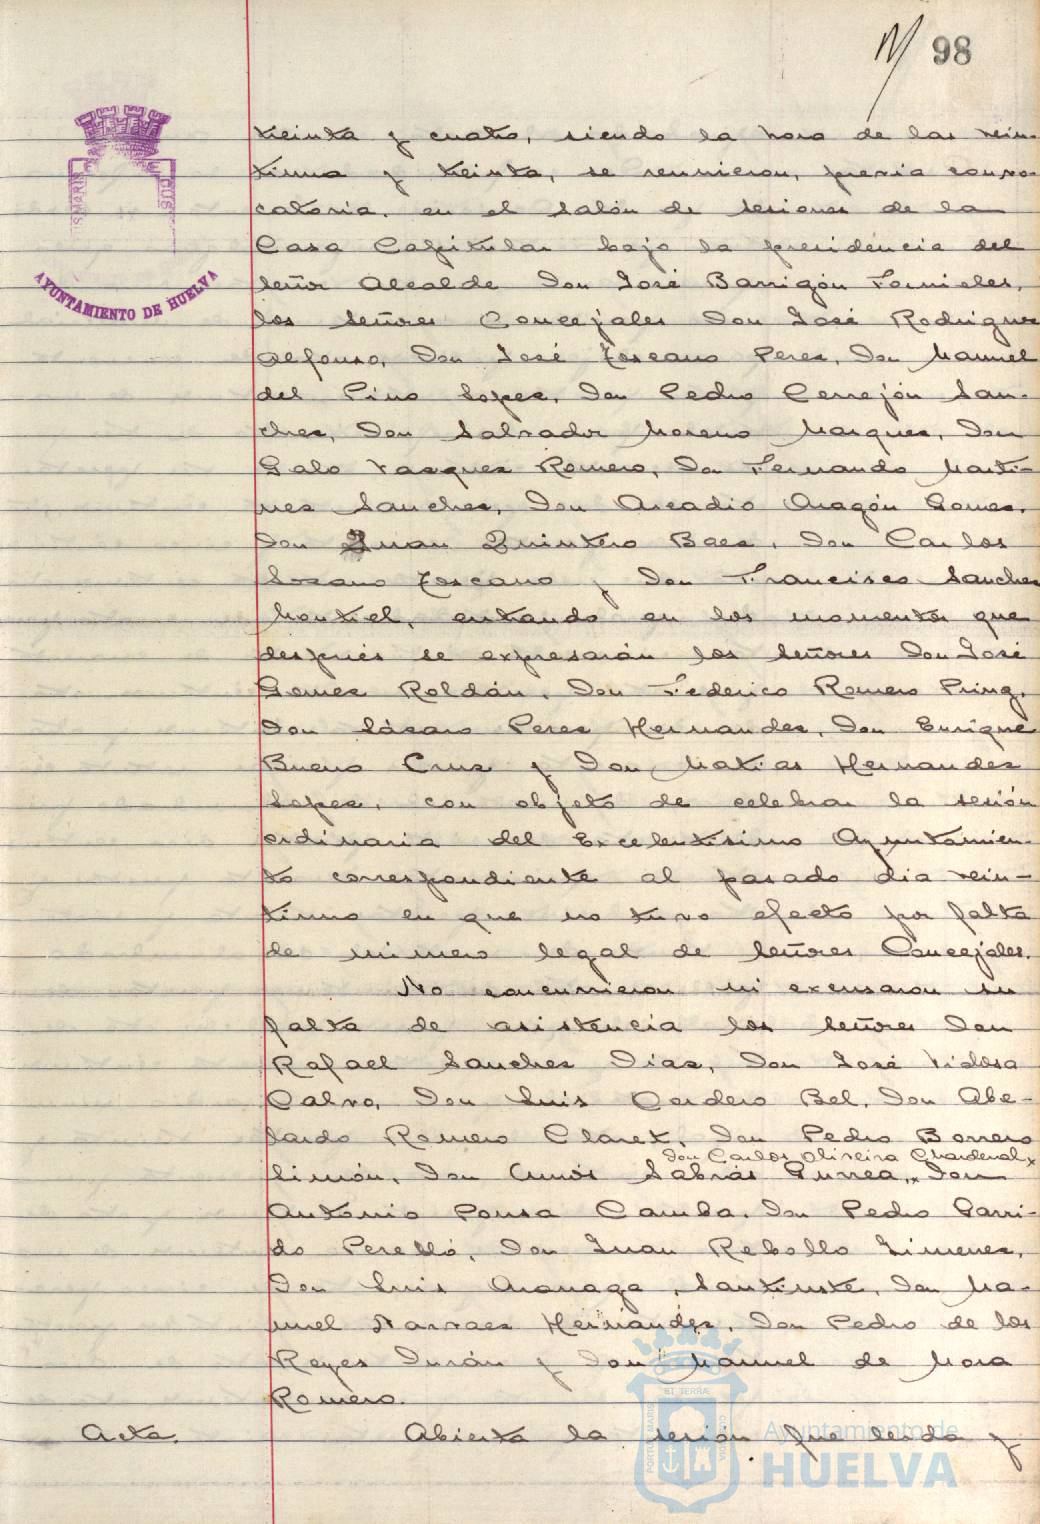 98
treinta y cuatro, siendo la hora de las vein-
tiuna y treinta, se reunieron, previa convo-
catoria, en el salón de sesiones de la
Casa Capitular bajo la presidencia del
señor Alcalde Don José Barrigón Fornieles,
los señores Concejales Don José Rodriguez
Alfonso, Don José Toscano Perez, Don Manuel
del Pino Lopez, Don Pedro Cerrejón San-
chez, Don Salvador Moreno Marquez, Don
Galo Vazquez Romero, Don Fernando Marti-
nez Sanchez, Don Arcadio Aragón Gomez,
Don Juan Quintero Baez, Don Carlos
Lozano Toscano y Don Francisco Sanchez
Montiel, entrando en los momentos que
después se expresarán los señores Don José
Gomez Roldán, Don Federico Romero Pring,
Don Lázaro Perez Hernandez, Don Enrique
Bueno Cruz y Don Matias Hernandez
Lopez, con objeto de celebrar la sesión
ordinaria del Excelentisimo Ayuntamien-
to correspondiente al pasado dia vein-
tiuno en que no tuvo efecto por falta
de número legal de señores Concejales.
No concurrieron ni excusaron su
falta de asistencia los señores Don
Rafael Sanchez Diaz, Don José Vidosa
Calvo, Don Luis Cordero Bel, Don Abe-
lardo Romero Claret, Don Pedro Borrero
Don Carlos Oliveira Chardenal,
Limón, Don Amós Sabrás Gurrea, Don
Antonio Pousa Camba, Don Pedro Garri-
do Perelló, Don Juan Rebollo Jimenez,
Don Luis Aranaga Santiuste, Don Ma-
nuel Narvaez Hernández, Don Pedro de los
Reyes Durán y Don Manuel de Mora
Romero.
Acta. Abierta la sesión fue leida y
AYUNTAMIENTO DE HUELVA
Ayuntamiento de
HUELVA